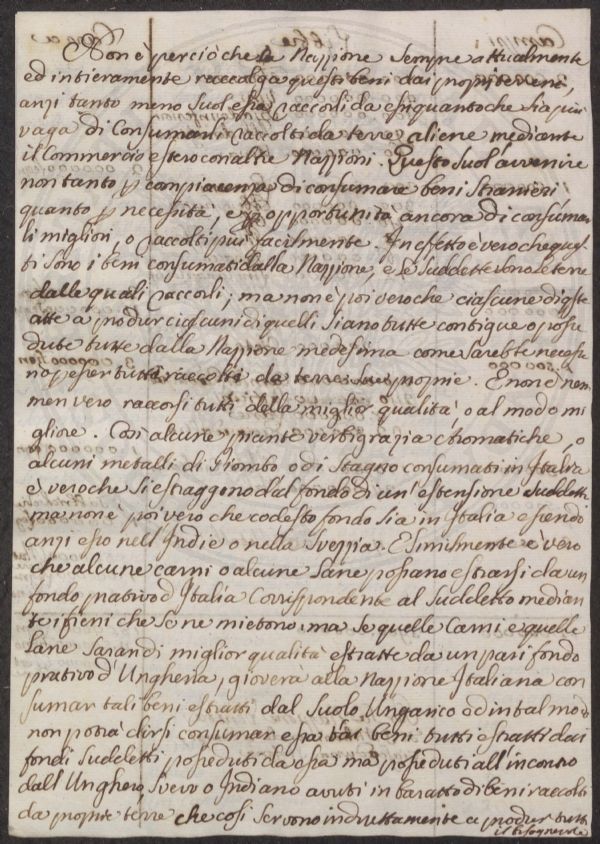 Non è perciò che la Nazione sempre attualmente
ed intieramente raccolga questi beni dai proprj terreni,
anzi tanto meno suol essa raccorli da essi quanto che sia più
vaga di consumarli raccolti da terre aliene mediante
il Commercio estero con altre Nazioni. Questo suol avvenire
non tanto p compiacenza di consumare beni stranieri
quanto p necessità, e p opportunità ancora di consumar
li migliori, o raccolti più facilmente. In effetto è vero che ques
ti sono i beni consumati dalla Nazione, e le suddette sono le terre
dalle quali raccorli; ma non è poi vero che ciascune di queste
atte a produr ciascuni di quelli siano tutte contigue o posse
dute tutte dalla Nazione medesima come sarebbe necessa
rio p esser tutti raccolti da terre sue proprie. E non è nem
men vero raccorsi tutti della miglior qualità, o al modo mi
gliore. Così alcune piante verbigrazia aromatiche, o
alcuni metalli di Piombo o di Stagno consumati in Italia
è vero che si estraggono dal fondo di un' estensione suddetta
ma non è poi vero che codesto fondo sia in Italia essendo
anzi esso nell' Indie o nella Svezzia. E similmente è vero
che alcune carni o alcune lane possano estrarsi da un
fondo prativo d' Italia corrispondente al suddetto median
te i fieni che se ne mietono, ma se quelle carni e quelle
lane saran di miglior qualità estratte da un pari fondo
prativo d' Ungheria, gioverà alla Nazione Italiana con
sumar tali beni estratti dal suolo Ungarico ed in tal modo
non potrà dirsi consumar essa beni tutti estratti dai
fondi suddetti posseduti da essa ma posseduti all' incontro
dall' Unghero, Svevo o Indiano avuti in baratto di beni raccolti
da proprie terre che così servono indirettamente a produr tutti
il bisognevole